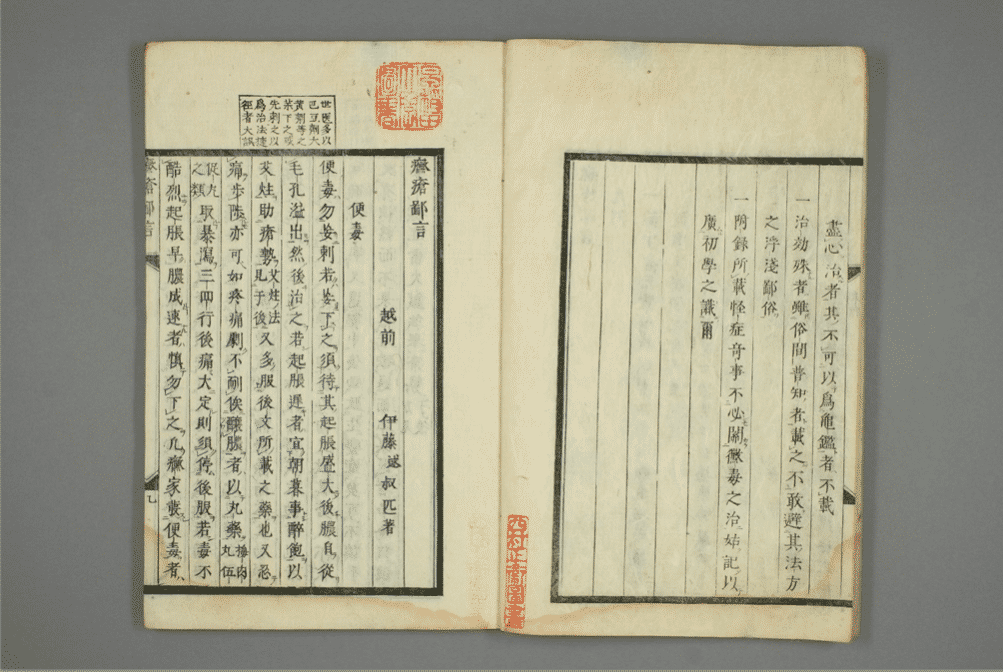 盡心治者其不可以爲龜鑑者不載
一治効殊者雖俗間普知者載之不敢避其法方
之浮淺鄙俗
一附錄所載怪症奇事不必關黴毒之治姑記以
廣初學之識爾
黴瘡鄙言
越前 伊藤 叔匹著
便毒
便毒勿妄刺若妄下之須待其起脹盛大後膿自從
毛孔溢出然後治之若起脹遲者宜朝暮事醉飽以
艾炷助瘡勢艾炷法見于後又多服後文所載之藥也又忍
痛步陟亦可如疼痛劇不耐俟釀膿者以丸藥搔肉丸伍
促丸之類取暴瀉三四行後痛大定則須停後服若毒不
酷烈起脹早膿成速者慎勿下之凡黴家載便毒者
世医多以
巴豆劑大
黄劑等之
藥下之或
先刺之以
爲治法捷
徑者大誤
黴瘡鄙言